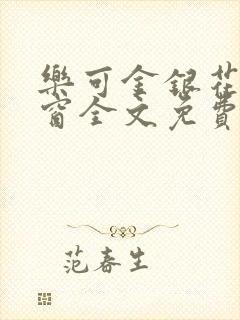 樂可金銀花
窗全文免費
范春生